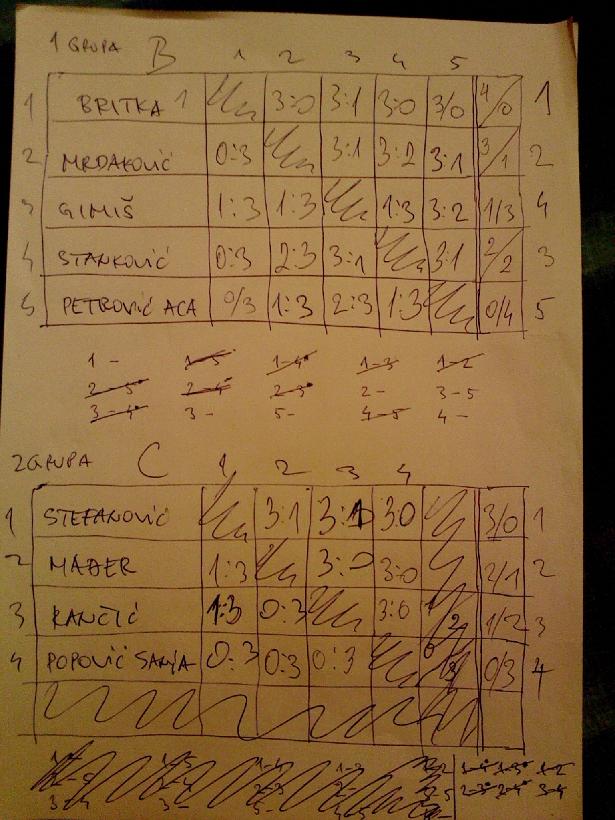 1 GRUPA B
1 2 3 4 5
1 BRITKA 1 3:0 3:1 3:0 3/0 4/0 1
2 MRDAKOVIĆ 0:3 3:1 3:2 3:1 3/1 2
3 GIMIŠ 1:3 1:3 1:3 3:2 1/3 4
4 STANKOVIĆ 0:3 2:3 3:1 3:1 2/2 3
5 PETROVIĆ ACA 0/3 1:3 2:3 1:3 0/4 5
1 - 1-5 1-4 1-3 1-2
2-5 2-4 2-3 2- 3-5
3-4 3- 5- 4-5 4-
2 GRUPA C
1 2 3 4
1 STEFANOVIĆ 3:1 3:1 3:0 3/0 1
2 MAĐER 1:3 3:0 3:0 2/1 2
3 KANČIĆ 1:3 0:3 3:0 1/2 3
4 POPOVIĆ SANJA 0:3 0:3 0:3 0/3 4
1-4 1-3 1-2
2-3 2-4 3-4